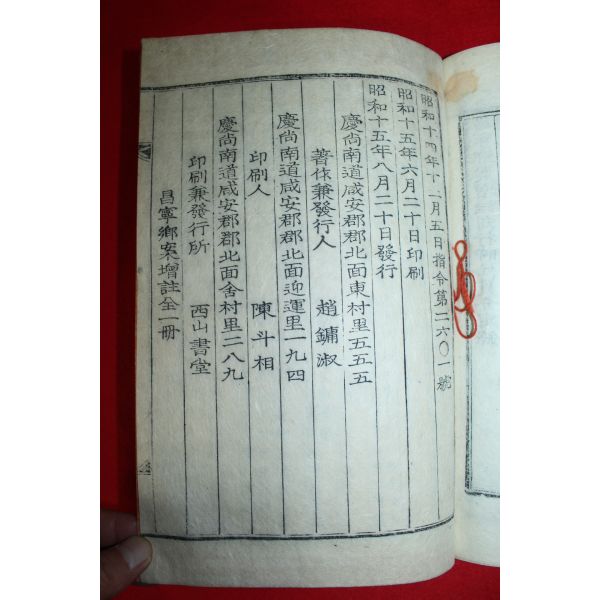 昭和十四年十二月五日指令第二六〇一號
昭和十五年六月二十日印刷
昭和十五年八月二十日發行
慶尚南道咸安郡郡北面東村里五五五
著作兼發行人 趙鏞淑
慶尚南道咸安郡郡北面迎運里一九四
印刷人 陳斗相
慶尚南道咸安郡郡北面舍村里二八九
印刷兼發行所 西山書堂
昌寧鄉案增註全一冊